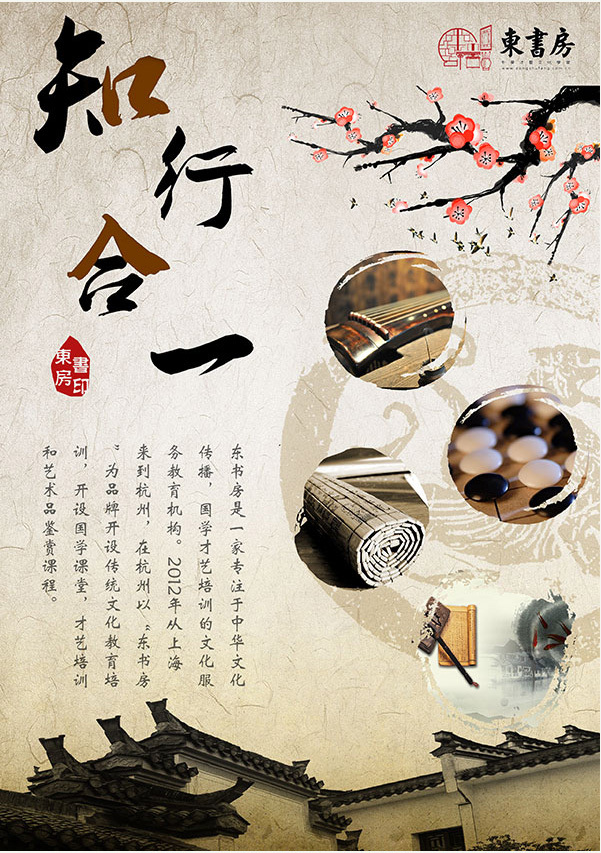 知行合一
東書房
www.dongshufang.com.cn
東書房印
东书房是一家专注于中华文化
传播，国学才艺培训的文化服
务教育机构。2012年从上海
来到杭州，在杭州以“东书房
”为品牌开设传统文化教育培
训，开设国学课堂，才艺培训
和艺术品鉴赏课程。